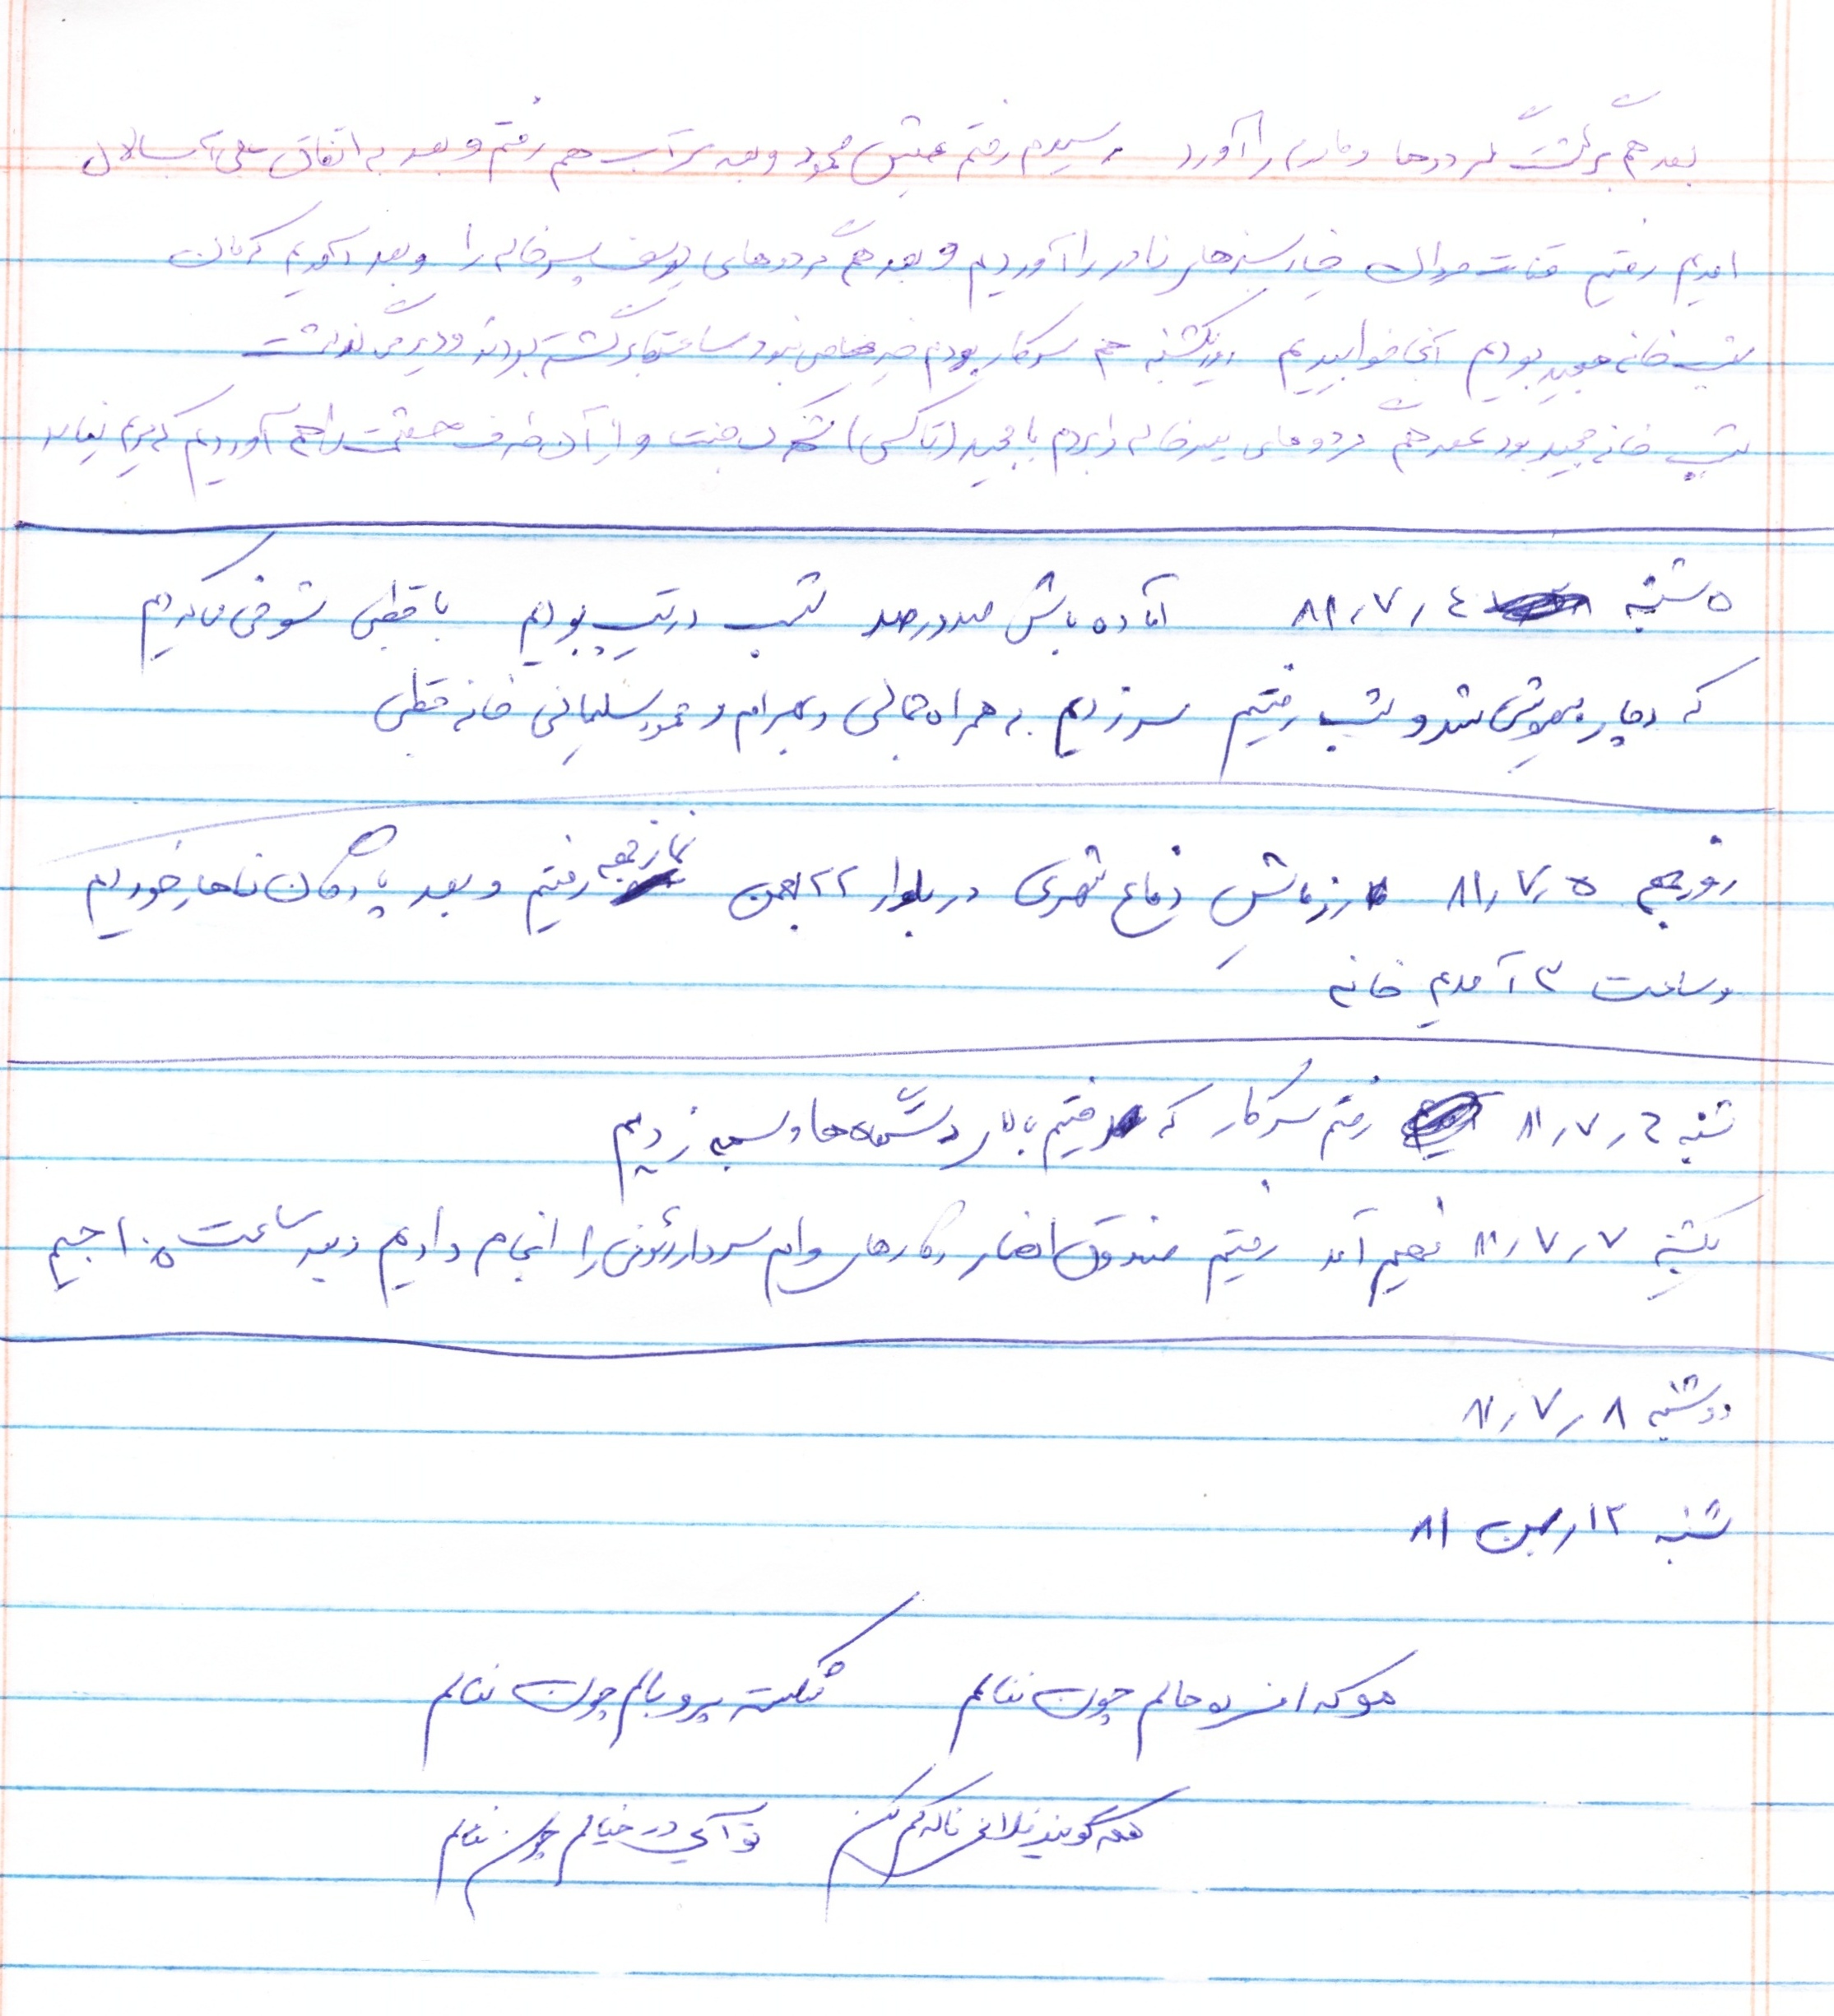 بعد هم برگشت گردوها و مادرم را آورد رسیدم رفتم پیش محمود و بعد سر آب هم رفتم و بعد به اتفاق علی
آمدیم رفتیم قنات خیارسبزهای نادر را آوردیم و بعد هم گردوهای یوسف پسرخاله را و بعد آمدیم کرمان
شب خانه مجید بودیم آنجا خوابیدیم روز یکشنبه هم سرکار بودم خبر خاصی نبود ساعتها برگشته بودند و دیر می گذشت
شب خانه مجید بود بعد هم گردوهای پسرخاله را بردم با مجید (تاکسی) و از آن طرف حشمت را هم آوردیم که
۵ شنبه ۸۱٫۷٫۴ آماده باش صددرصد شب در تیپ بودیم با قطبی شوخی می کردیم
که دچار بیهوشی شد و شب رفتیم سر زدیم به همراه جمالی و بهرام و محمود سلیمانی خانه قطبی
روز جمعه ۸۱٫۷٫۵ رزمایشِ دفاع شهری در بلوار ۲۲ بهمن نماز جمعه رفتیم و بعد پادگان ناهار خوردیم
و ساعت ۳ آمدیم خانه
شنبه ۸۱٫۷٫۶ رفتم سرکار که رفتیم بالا و سر زدیم
یکشنبه ۸۱٫۷٫۷ فهیم آمد رفتیم صندوق انصار و کارهای وام سردار رئوفی را انجام دادیم و بعد ساعت ۱۰
دوشنبه ۸۱٫۷٫۸
شنبه ۱۲ بهمن ۸۱
مو که افسرده حالم چون ننالم شکسته پر و بالم چون ننالم
همه گویند فلانی ناله کم کن تو آیی در خیالم چون ننالم